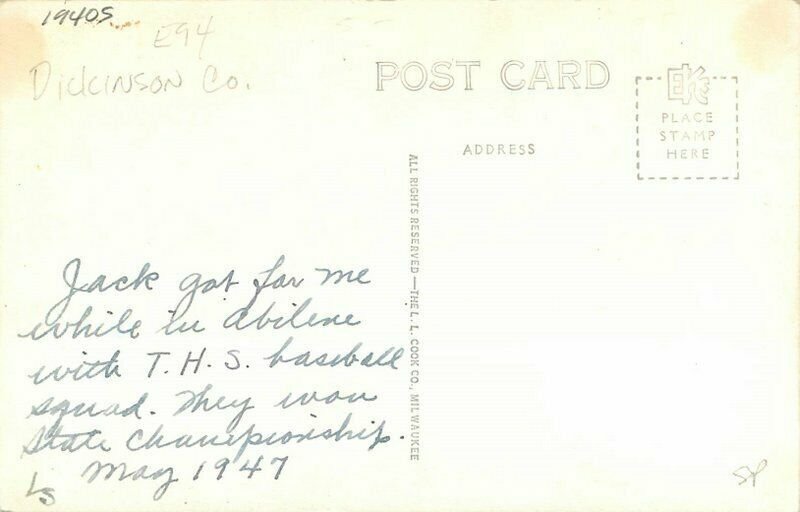 1940S
E94
Dickinson Co.
POST CARD
EKC
PLACE
STAMP
HERE
ADDRESS
ALL RIGHTS RESERVED—THE L. L. COOK CO., MILWAUKEE
Jack got for me
while in Abilene
with T.H.S. baseball
squad. They won
State Championship.
May 1947
LS
SP